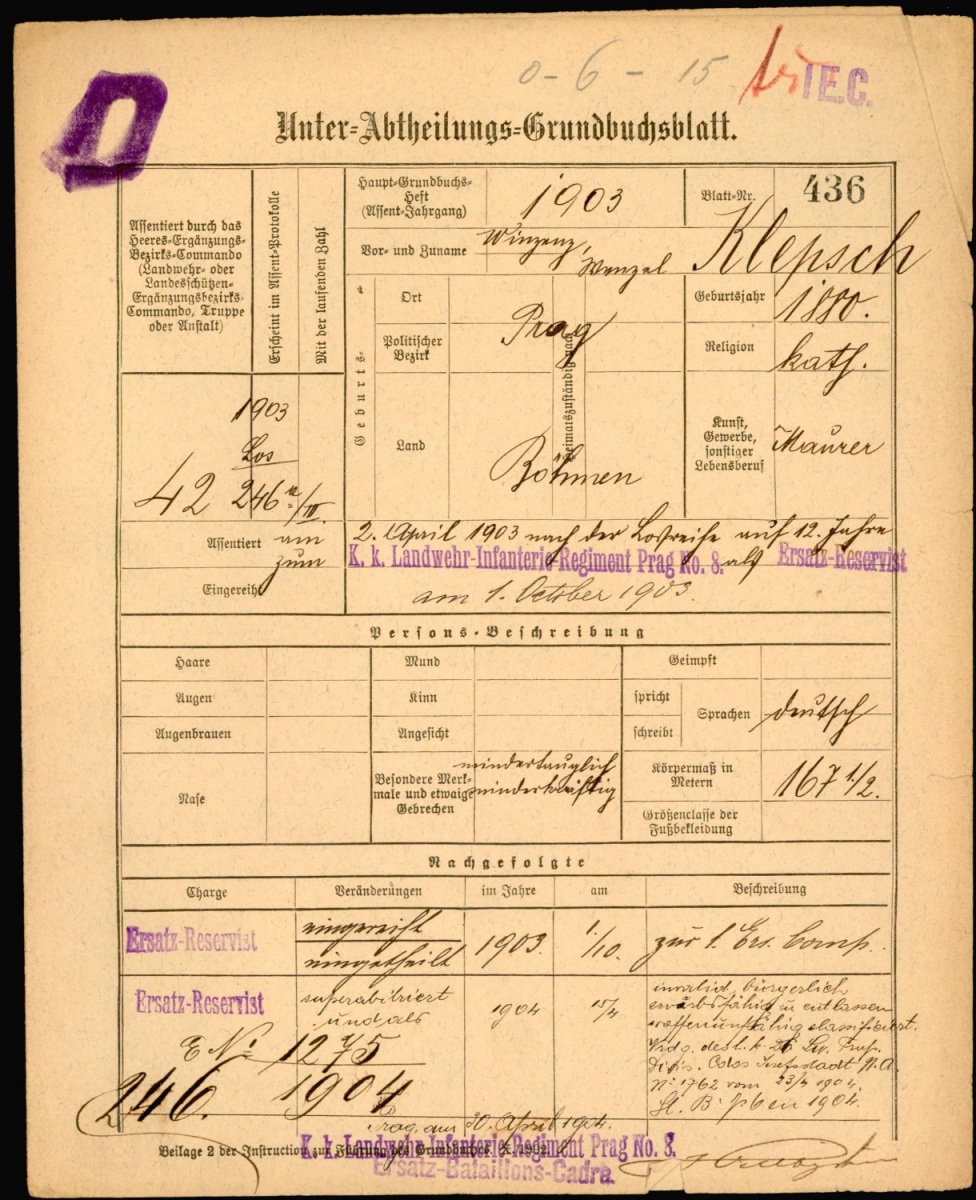 0 - 6 - 15
I E.C.
D
Unter=Abtheilungs=Grundbuchsblatt.
Assentiert durch das Heeres-Ergänzungs-Bezirks-Commando (Landwehr- oder Landesschützen-Ergänzungsbezirks-Commando, Truppe oder Anstalt)
Erscheint im Assent-Protokolle
Mit der laufenden Zahl
Haupt-Grundbuchs-Heft (Assent-Jahrgang)
1903
Blatt-Nr.
436
Vor- und Zuname
Winzenz, Wenzel Klepsch
Geburts-
Ort
Politischer Bezirk
Land
Prag
Böhmen
Heimatszuständig nach
Geburtsjahr
1880.
Religion
kath.
Kunst, Gewerbe, sonstiger Lebensberuf
Maurer
1903
Los
42 246 a/III.
Assentiert am
2. April 1903 nach der Losreihe auf 12 Jahre
zum K. k. Landwehr-Infanterie-Regiment Prag No. 8. als Ersatz-Reservist
Eingereiht
am 1. October 1903.
Persons-Beschreibung
Haare
Augen
Augenbrauen
Nase
Mund
Kinn
Angesicht
Besondere Merkmale und etwaige Gebrechen
mindertauglich
minderkräftig
Geimpft
spricht
schreibt
Sprachen
deutsch
Körpermaß in Metern
167 1/2.
Größenclasse der Fußbekleidung
Nachgefolgte
Charge Veränderungen im Jahre am Beschreibung
Ersatz-Reservist eingereiht 1903. 1./10. zur 1. Ers. Comp.
eingetheilt
Ersatz-Reservist superarbitriert 1904 15/4 invalid, bürgerlich
und als erwerbsfähig zu entlassen
waffenunfähig classificiert.
E No 1275
1904
246.
Vrdg. des k. k. 26 Lw. Trup.
Divis. Cdos Josefstadt M.A.
No 1762 vom 23/4 1904.
Prag, am 30. April 1904.
Beilage 2 der Instruction zur Führung des Grundbuches X. 1902
K. k. Landwehr-Infanterie-Regiment Prag No. 8.
Ersatz-Bataillons-Cadre.